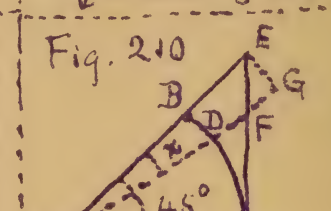 Fig. 210
E
G
B
D
F
x
45°